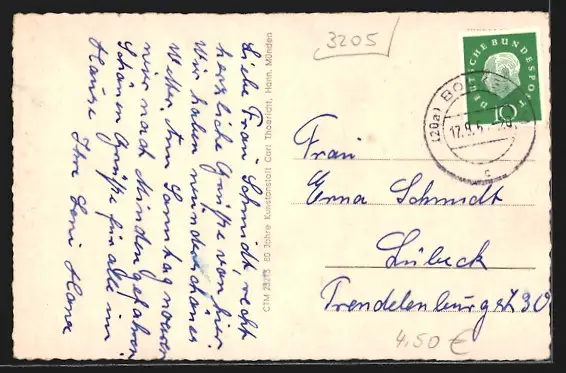 3205
DEUTSCHE BUNDESPOST
10
(20a) BO
17.9.5
c
Liebe Frau Schmidt, recht
herzliche Grüße von hier.
Wir haben wunderschönes
Wetter. Am Sonntag waren
wir nach Minden gefahren
Schönen Grüße für alle im
Hause Ihre
CTM 23213 80 Jahre Kunstanstalt Carl Thoericht, Hann. Münden
Frau
Erna Schmidt
Lübeck
Trendelenburgstr 30
4.50 €